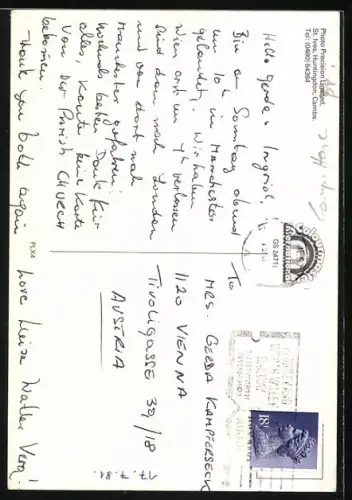 Hello Gerda & Ingrid.
Bin am Sonntag abend
um 10h in Manchester
gelandet. Wir haben
Wien erst um 7h verlassen
sind dann nach London
und von dort nach
Manchester gefahren.
Nochmals besten Dank für
alles, konnte keine Karte
von der Parish Church
bekommen.
Thank you both again
Love Luise Walter Vera!
TO
MRS. GERDA KAMPFERSECK
1120 VIENNA
TIVOLIGASSE 39/18
AUSTRIA
17.7.81.
Photo Precision Limited,
St. Ives, Huntingdon, Cambs.
Tel: (0480) 64364
PLX4
GS 2471
18P